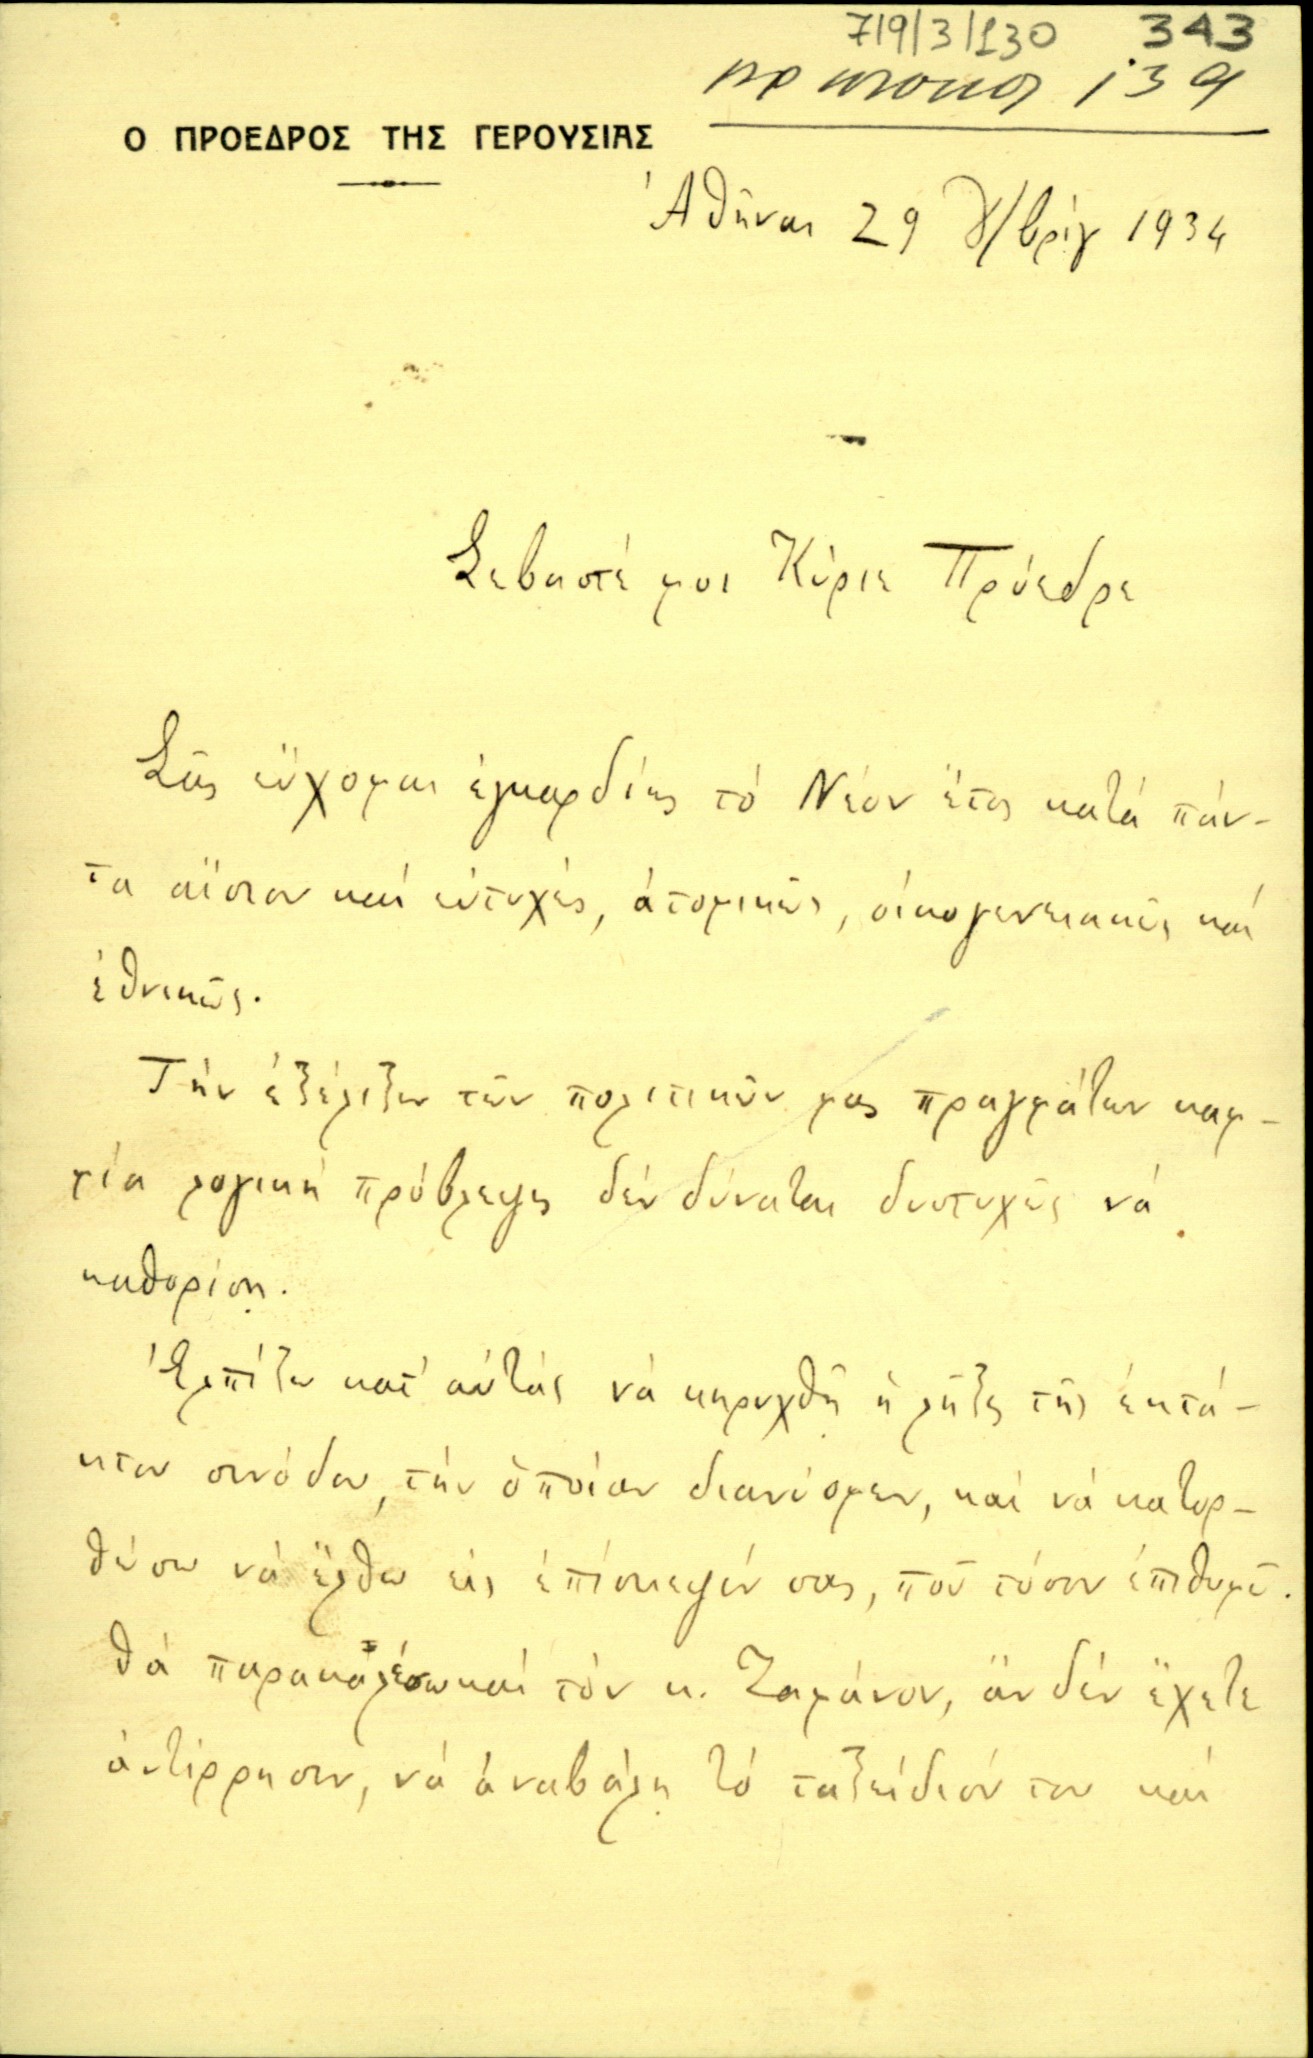 7/9/3/130 343
139
Ο ΠΡΟΕΔΡΟΣ ΤΗΣ ΓΕΡΟΥΣΙΑΣ
Ἀθῆναι 29 1934
Σεβαστέ μοι Κύριε Πρόεδρε
Σᾶς εὔχομαι ἐγκαρδίως τό Νέον ἔτος κατά πάν-
τα αἴσιον καί εὐτυχές, ἀτομικῶς, οἰκογενειακῶς καί
ἐθνικῶς.
Τήν ἐξέλιξιν τῶν πολιτικῶν μας πραγμάτων καμ-
μία λογική πρόβλεψις δέν δύναται δυστυχῶς νά
καθορίσῃ.
Ἐλπίζω κατ' αὐτάς νά κηρυχθῇ ἡ λῆξις τῆς ἐκτά-
κτου συνόδου, τήν ὁποίαν διανύομεν, καί νά κατορ-
θώσω νά ἔλθω εἰς ἐπίσκεψίν σας, πού τόσον ἐπιθυμῶ.
Θά παρακαλέσω καί τόν κ. Ζαμάνον, ἄν δέν ἔχετε
ἀντίρρησιν, νά ἀναβάλῃ τό ταξείδιόν του καί